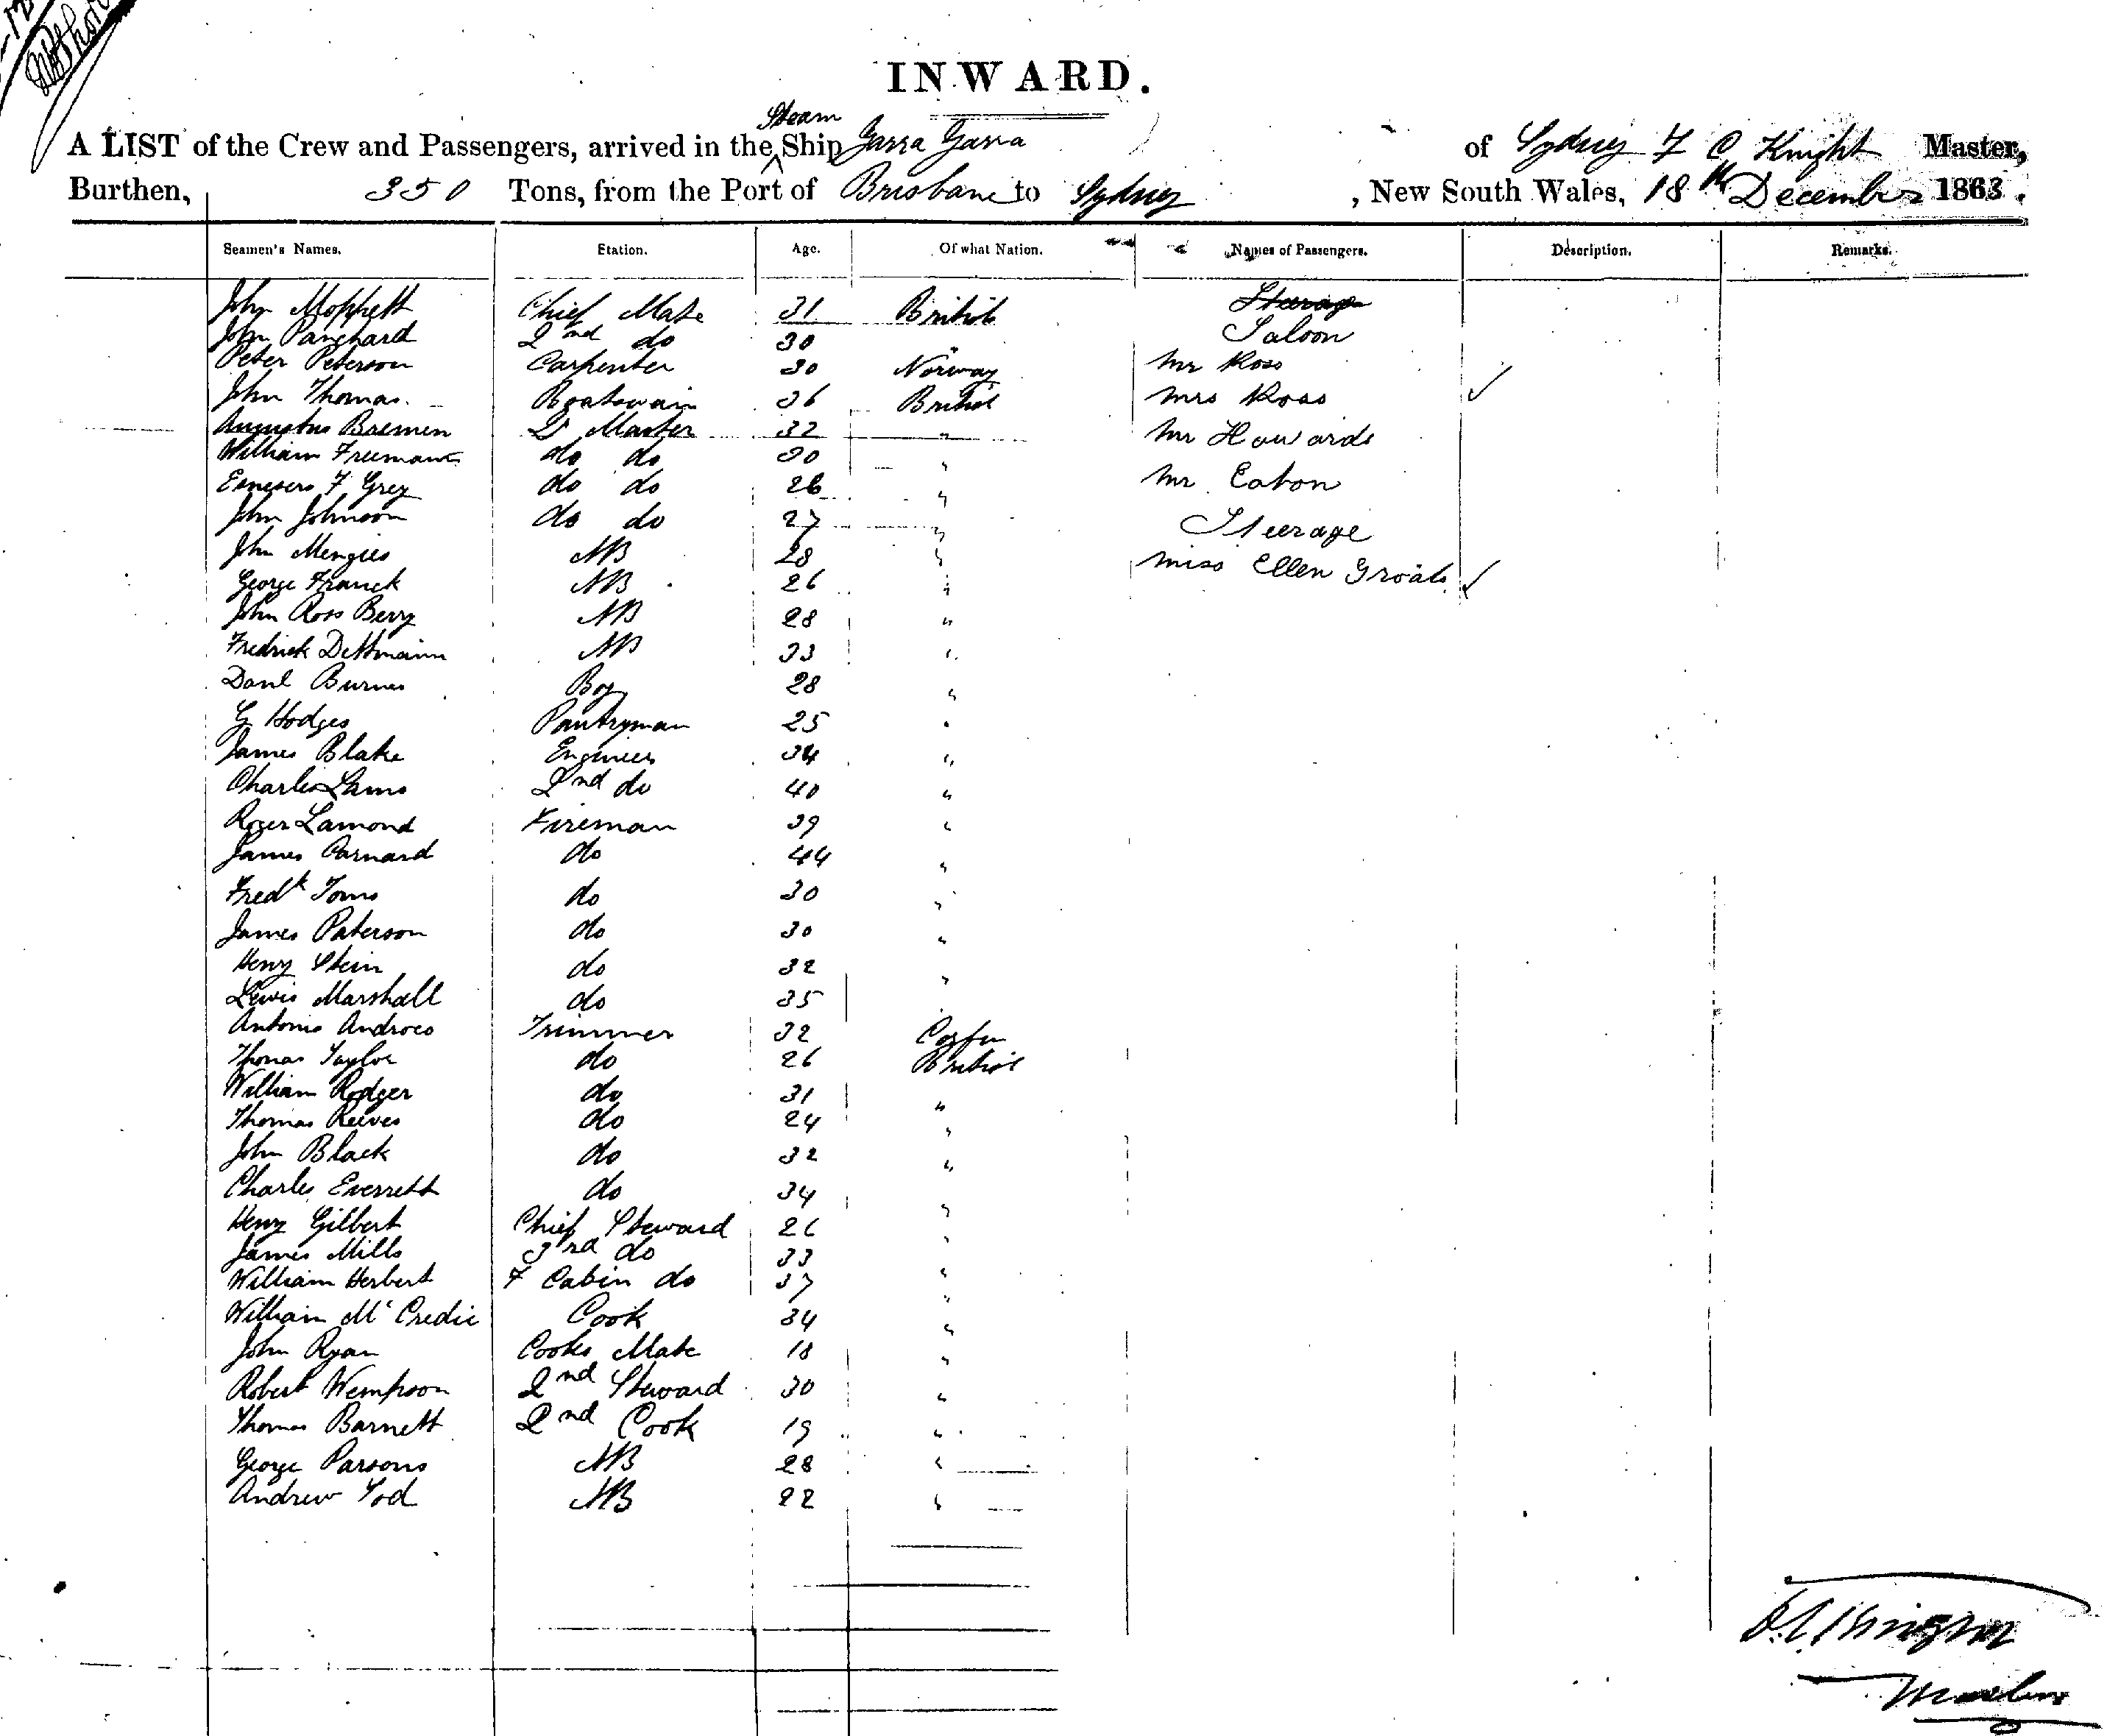 INWARD.
A LIST of the Crew and Passengers, arrived in the Steam Ship Yarra Yarra of Sydney F C Knight Master,
Burthen, 350 Tons, from the Port of Brisbane to Sydney, New South Wales, 18th December 1863.
Seamen's Names. Station. Age. Of what Nation. Names of Passengers. Description. Remarks.
John Moppett Chief Mate 31 British Steerage
John Panchard 2nd do 30 " Saloon
Peter Peterson Carpenter 30 Norway Mr Ross
John Thomas Boatswain 36 British Mrs Ross ✓
Augustus Bremen Qr Master 32 " Mr Howards
William Freemant do do 30 "
F Grey do do 26 " Mr Eaton
John Johnson do do 27 " Steerage
John Mengies AB 28 " Miss Ellen Groats ✓
George Franck AB 26 "
John Ross Berry AB 28 "
Fredrick Dettmann AB 33 "
Danl Burnes Boy 28 "
G Hodges Pantryman 25 "
James Blake Engineer 34 "
Charles Lams 2nd do 40 "
Roger Lamond Fireman 39 "
James Parnard do 44 "
Fredk Toms do 30 "
James Paterson do 30 "
Henry Stein do 32 "
Lewis Marshall do 35 "
Antonio Androco Trimmer 32 Corfu
Thomas Taylor do 26 British
William Rodger do 31 "
Thomas Reeves do 24 "
John Black do 32 "
Charles Everrett do 34 "
Henry Gilbert Chief Steward 26 "
James Mills 3rd do 33 "
William Herbert F Cabin do 37 "
William McCredie Cook 34 "
John Ryan Cooks Mate 18 "
Robert Wempson 2nd Steward 30 "
Thomas Barnett 2nd Cook 19 "
George Parsons AB 28 "
Andrew Tod AB 22 "
Master